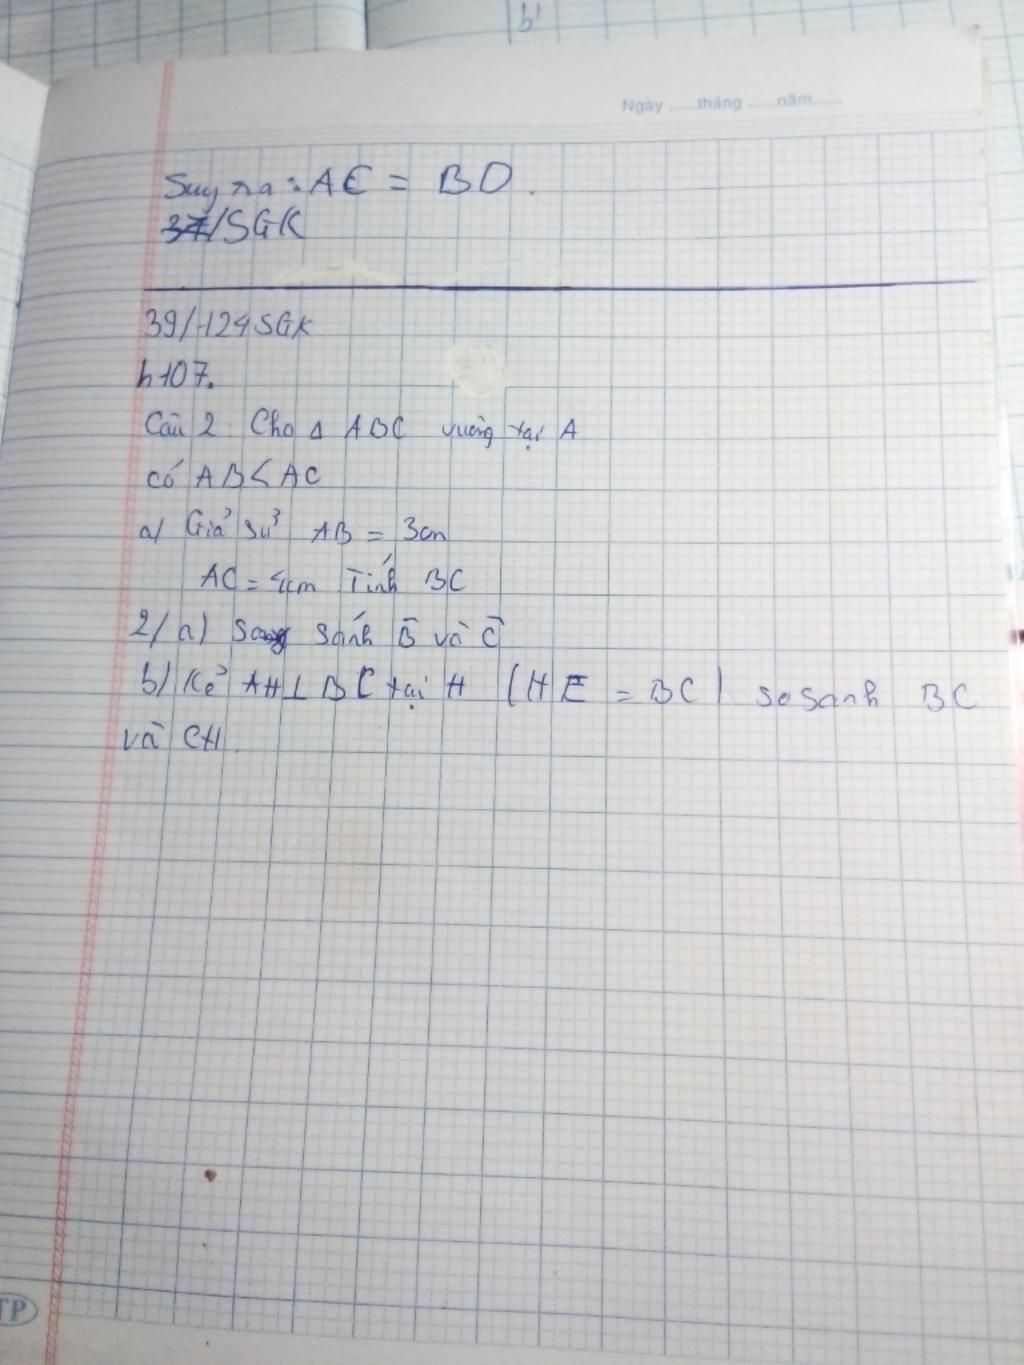 b'
Ngày ......tháng ......năm......
Suy ra : AC = BD.
37/SGK
39/124 SGK
h107.
Câu 2 Cho Δ ABC vuông tại A
có AB < AC
a/ Giả sử AB = 3cm
AC = 4cm Tính BC
2/ a) sánh B̂ và Ĉ
b/ Kẻ AH ⊥ BC tại H (HE = BC) so sanh BC
và CH.
TP